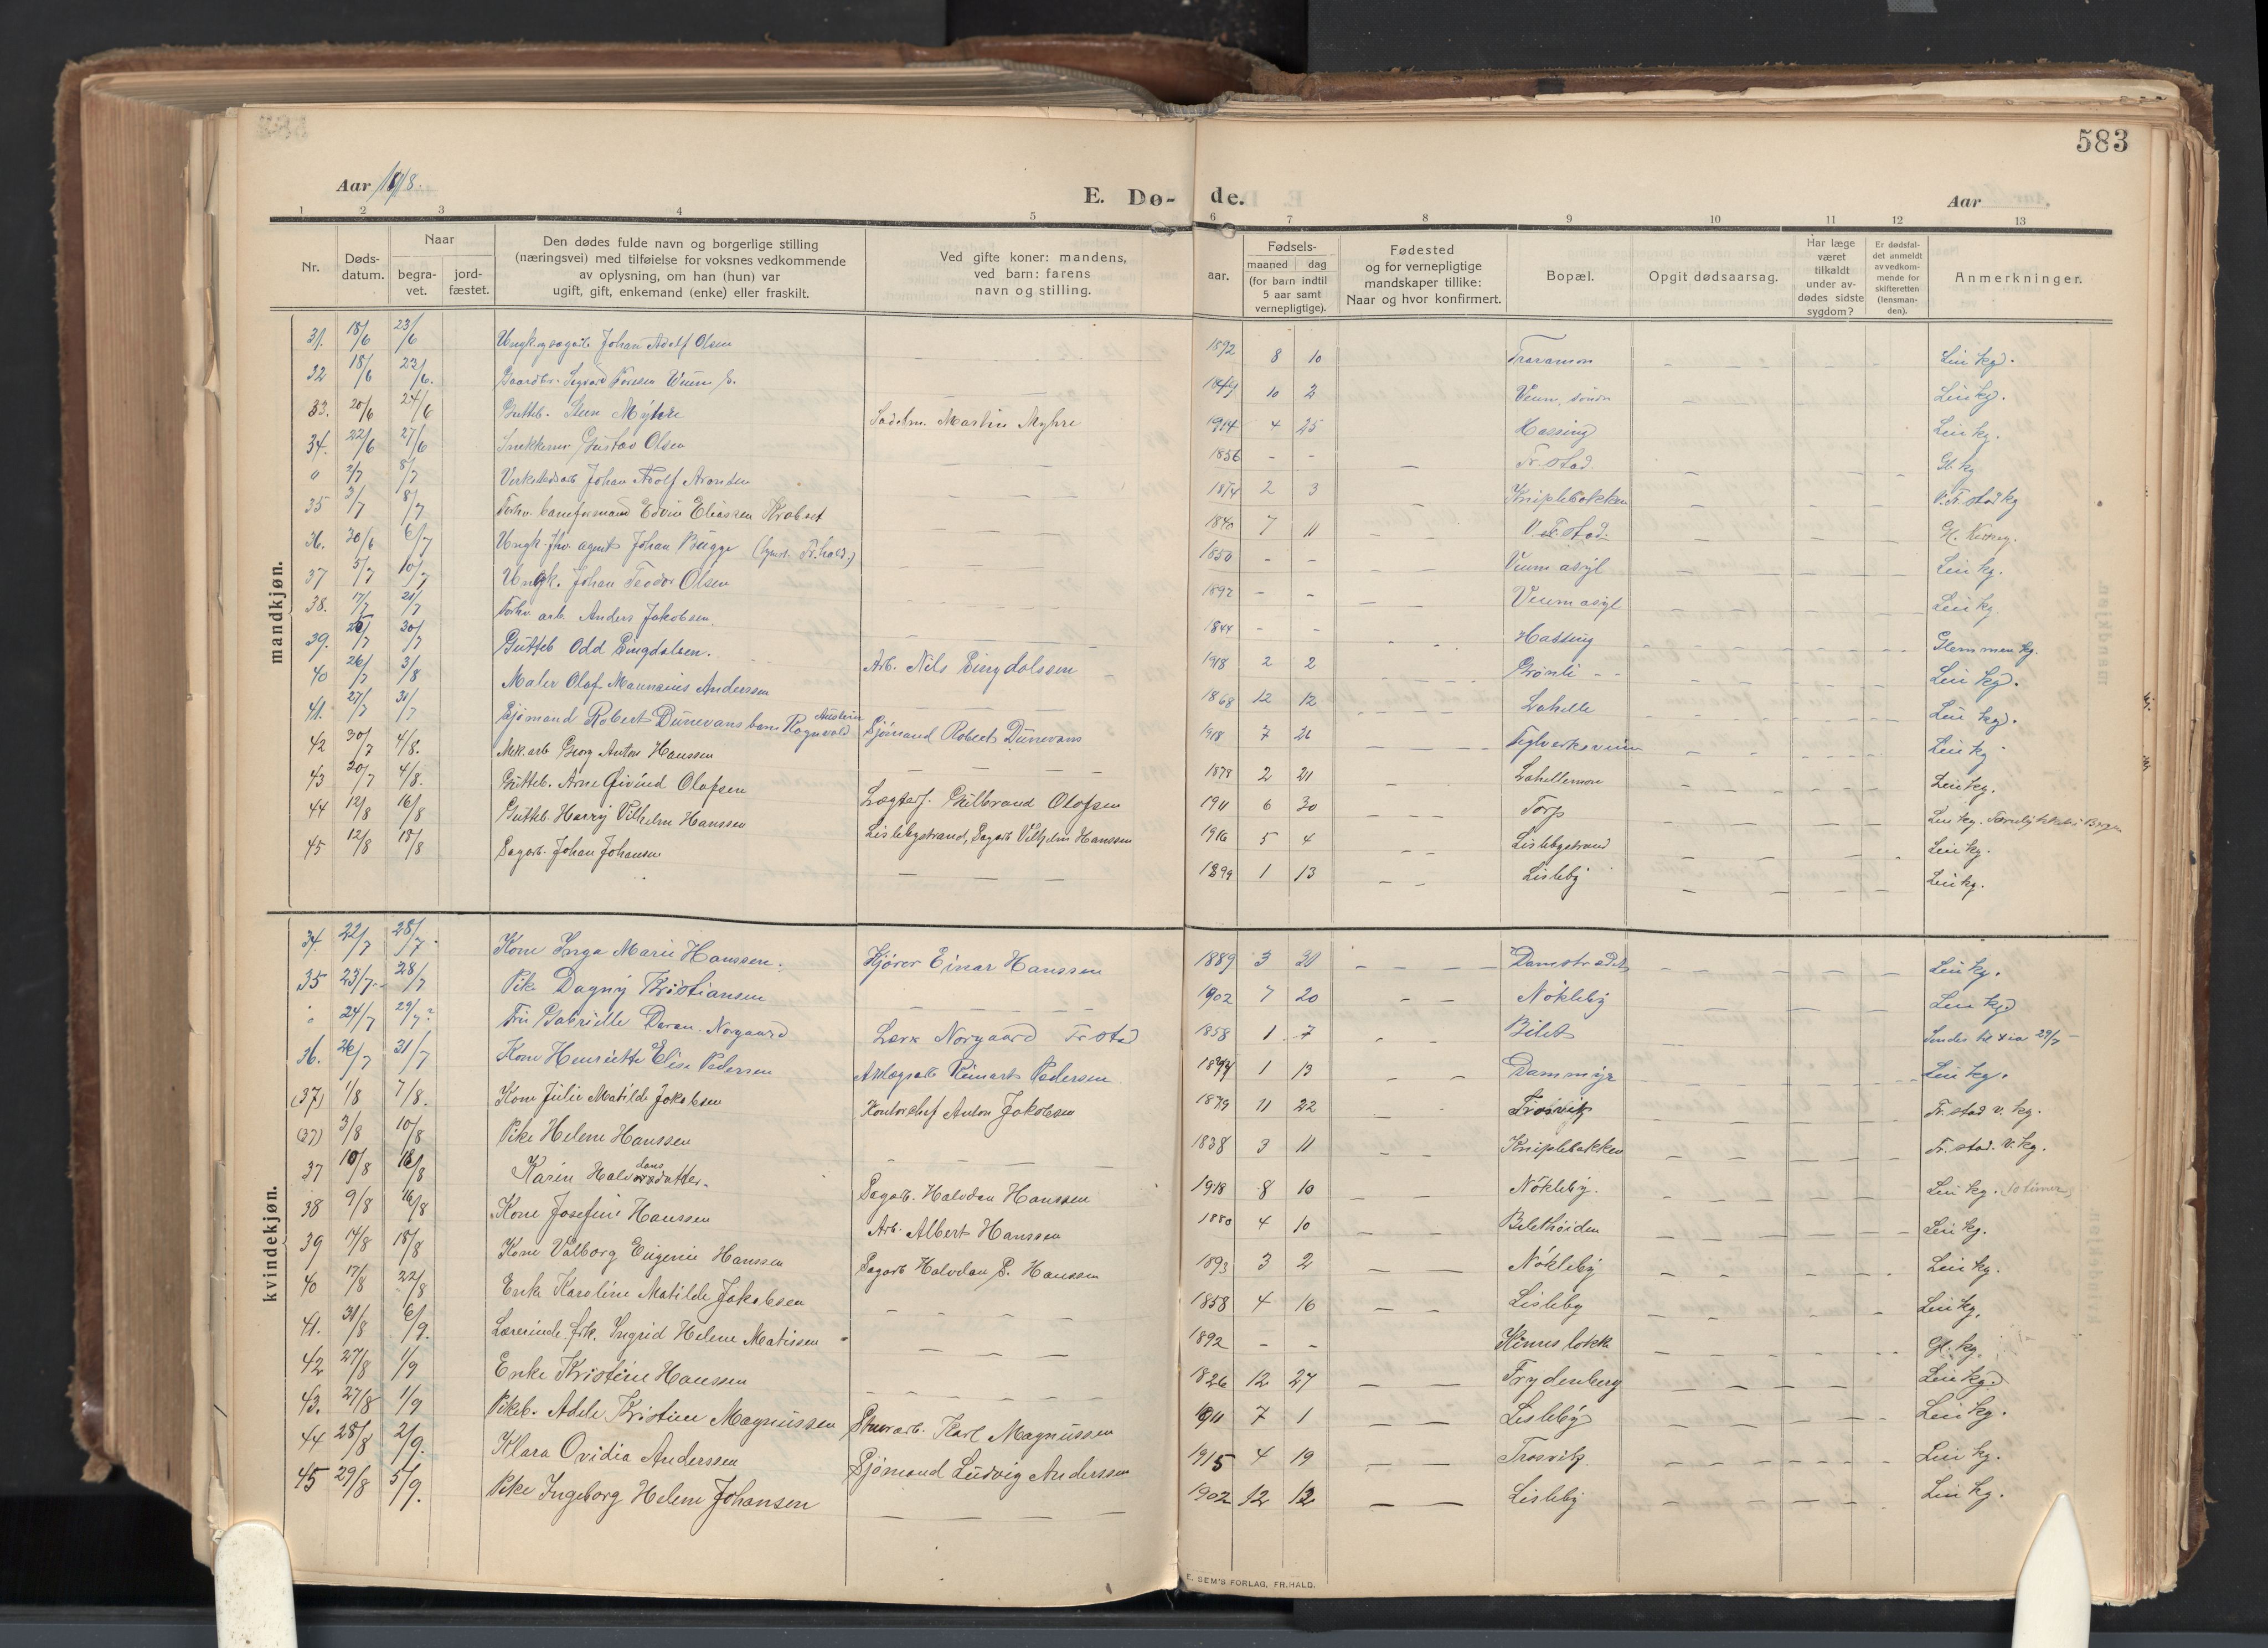 583
Aar 1918. E. Dø- de. Aar
1 2 3 4 5 6 7 8 9 10 11 12 13
Nr. Døds-datum. Naar begra-vet. jord-fæstet. Den dødes fulde navn og borgerlige stilling (næringsvei) med tilføielse for voksnes vedkommende av oplysning, om han (hun) var ugift, gift, enkemand (enke) eller fraskilt. Ved gifte koner: mandens, ved barn: farens navn og stilling. Fødsels- aar. maaned dag (for barn indtil 5 aar samt vernepligtige). Fødested og for vernepligtige mandskaper tillike: Naar og hvor konfirmert. Bopæl. Opgit dødsaarsag. Har læge været tilkaldt under av-dødes sidste sygdom? Er dødsfal-det anmeldt av vedkom-mende for skifteretten (lensman-den). Anmerkninger.
mandkjøn.
31. 18/6 23/6 Johan Adolf Olsen — — — 1892 8 10 Traramoen Lei kg.
32 18/6 23/6. Gaardbr. Sigvard — — — 10 2 Veum Lei kg.
33. 20/6 24/6 Gutteb. Sten Myhre Sadelm. Martin Myhre 1914 4 25 Hassing Lei kg.
34. 22/6 27/6 Snekkerm. Gustav Olsen — — — 1856 - - Fr.stad Gl. kg
" 2/7 8/7 Verkstedsarb Johan Adolf Arondsen — — — 1874 2 3 Kniplebakken V. Fr. stad kg
35 3/7 8/7 Forhv. baneformand Edvin Eliassen Krabset — — — 1840 7 11 V. Fr. stad. Gl. Kirkeg.
36. 30/6 6/7 Ungk. fhv. agent Johan Bugge — — — 1850 - - Veum asyl Lei kg.
37 5/7 10/7 Ungk. Johan Teodor Olsen — — — 1892 - - Veum asyl Lei kg
38. 17/7 21/7 Forhv. arb. Anders Jakobsen. — — — 1844 - - Hassing Glemmen kg.
39. 25/7 30/7 Gutteb Odd Lingdalsen. Arb. Nils Lingdalssen 1918 2 2 Grønli Lei kg.
40 26/7 3/8 Maler Olaf Mauritius Anderssen — — — 1868 12 12 Lahelle Lei kg.
41. 27/7 31/7 Sjømand Robert Dunevans barn Ragnvald Austein Sjømand Robert Dunevans 1918 7 26 Teglverksveien Lei kg
42 30/7 4/8. Mek arb Georg Anton Hanssen — — — 1878 2 21 Lahellemoen Lei kg.
43 30/7 4/8. Gutteb. Arne Øivind Olafsen Lagterf. Gulbrand Olafsen 1911 6 30 Torp Lei kg.
44 12/8 16/8 Gutteb. Harry Vilhelm Hanssen Lislebystrand, Sagarb Vilhelm Hanssen 1916 5 4 Lislebystrand Lei kg.
45 12/8 18/8 Sagarb. Johan Johansen — — — 1899 1 13 Lisleby Lei kg.
kvindekjøn.
34. 22/7 28/7. Kone Inga Marie Hanssen. Kjører Einar Hanssen 1889 3 30 Damstrædet Lei kg.
35 23/7 28/7 Pike Dagny Kristiansen — — — 1902 7 20 Nøkleby Lei kg
" 24/7 29/7? Fru Gabrielle Norgaard Norgaard Fr.stad 1858 1 7 Bilet Sendes til 29/7 -
36. 26/7 31/7 Kone Henriette Elise Pedersen Anlægsarb Reinart Pedersen 1894 1 13 Dammyr Lei kg.
(37) 1/8 7/8. Kone Julie Matilde Jakobsen Kontorchef Anton Jakobsen 1879 11 22 Trosvik Fr. stad v. kg.
(37) 3/8 10/8 Pike Helene Hanssen — — — 1838 3 11 Kniplebakken Fr. stad. v. kg.
37 10/8 16/8 Karin Halvdansdatter. Sagarb. Halvdan Hanssen 1918 8 10 Nøkleby. Lei kg. (10 timer)
38 9/8 16/8 Kone Josefine Hanssen Arb. Albert Hanssen 1880 4 10 Bilethøiden Lei kg.
39 14/8 18/8 Kone Valborg Eugenie Hanssen Sagarb Halvdan P. Hanssen 1893 3 2 Nøkleby Lei kg.
40 17/8 22/8 Enke Karoline Matilde Jakobsen — — — 1858 4 16 Lisleby Lei kg.
41. 31/8 6/9. Lærerinde frk. Ingrid Helene Matissen — — — 1892 - - Gl. kg.
42 27/8 1/9 Enke Kristine Hanssen — — — 1826 12 27 Frydenberg Lei kg
43. 27/8 1/9 Pikeb. Adele Kristine Magnussen Karl Magnussen 1911 7 1 Lisleby Lei kg.
44 28/8 2/9. Klara Ovidia Anderssen Sjømand Ludvig Anderssen 1915 4 19 Trosvik Lei kg.
45 29/8 5/9. Pike Ingeborg Helene Johansen — — — 1902 12 12 Lisleby Lei kg.
E. SEM'S FORLAG, FR.HALD.